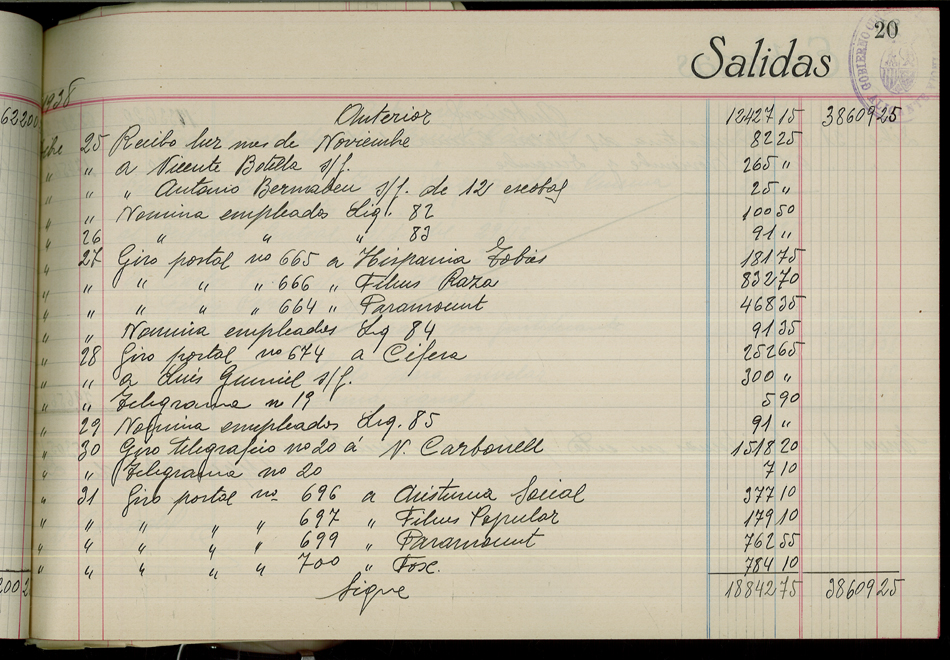 20
Salidas
1938
62200
Anterior 12427 15 38609 25
bre 25 Recibo luz mes de Noviembre 82 25
" " a Vicente Botella s/f. 265 "
" " " Antonio Bernabeu s/f. de 12 escobas 25 "
" " Nomina empleados Liq. 82 100 50
" 26 " " " 83 91 "
" 27 Giro postal nº 665 a Hispania Tobis 181 75
" " " " " 666 " Films Raza 832 70
" " " " " 664 " Paramount 468 35
" " Nomina empleados Lq 84 91 35
" 28 Giro postal nº 674 a Cifesa 252 65
" " a Luis s/f. 300 "
" " Telegrama n 19 5 90
" 29 Nomina empleados Liq. 85 91 "
" 30 Giro telegrafico nº 20 á V. Carbonell 1518 20
" " Telegrama nº 20 7 10
" 31 Giro postal nº 696 a Social 377 10
" " " " " 697 " Films Popular 179 10
" " " " " 699 " Paramount 762 55
" " " " " 700 " Fox. 784 10
Sigue 18842 75 38609 25